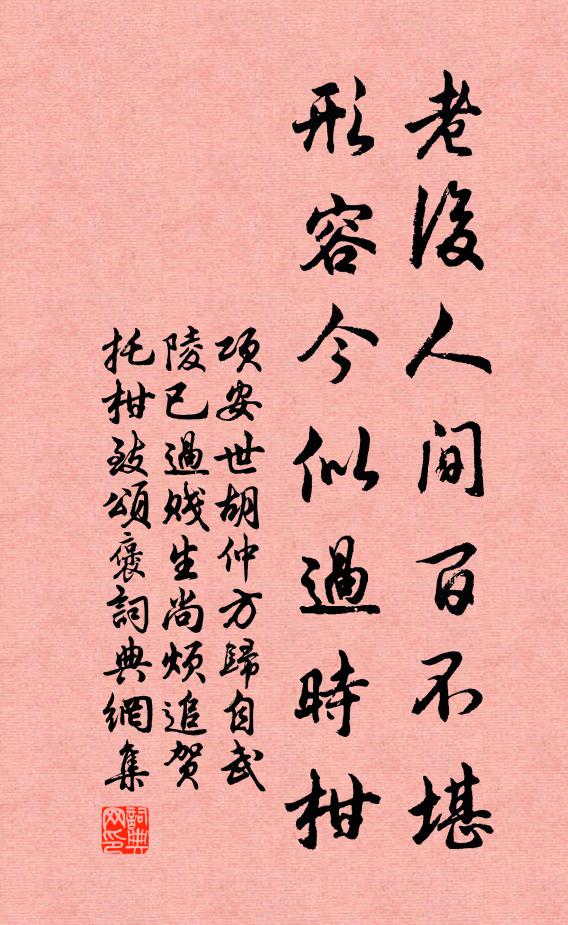 老後人間百不堪
形容今似過時柑
項安世胡仲方歸自武
陵已過賤生尚煩追賀
托柑致頌褒詞典網集
詞典网印